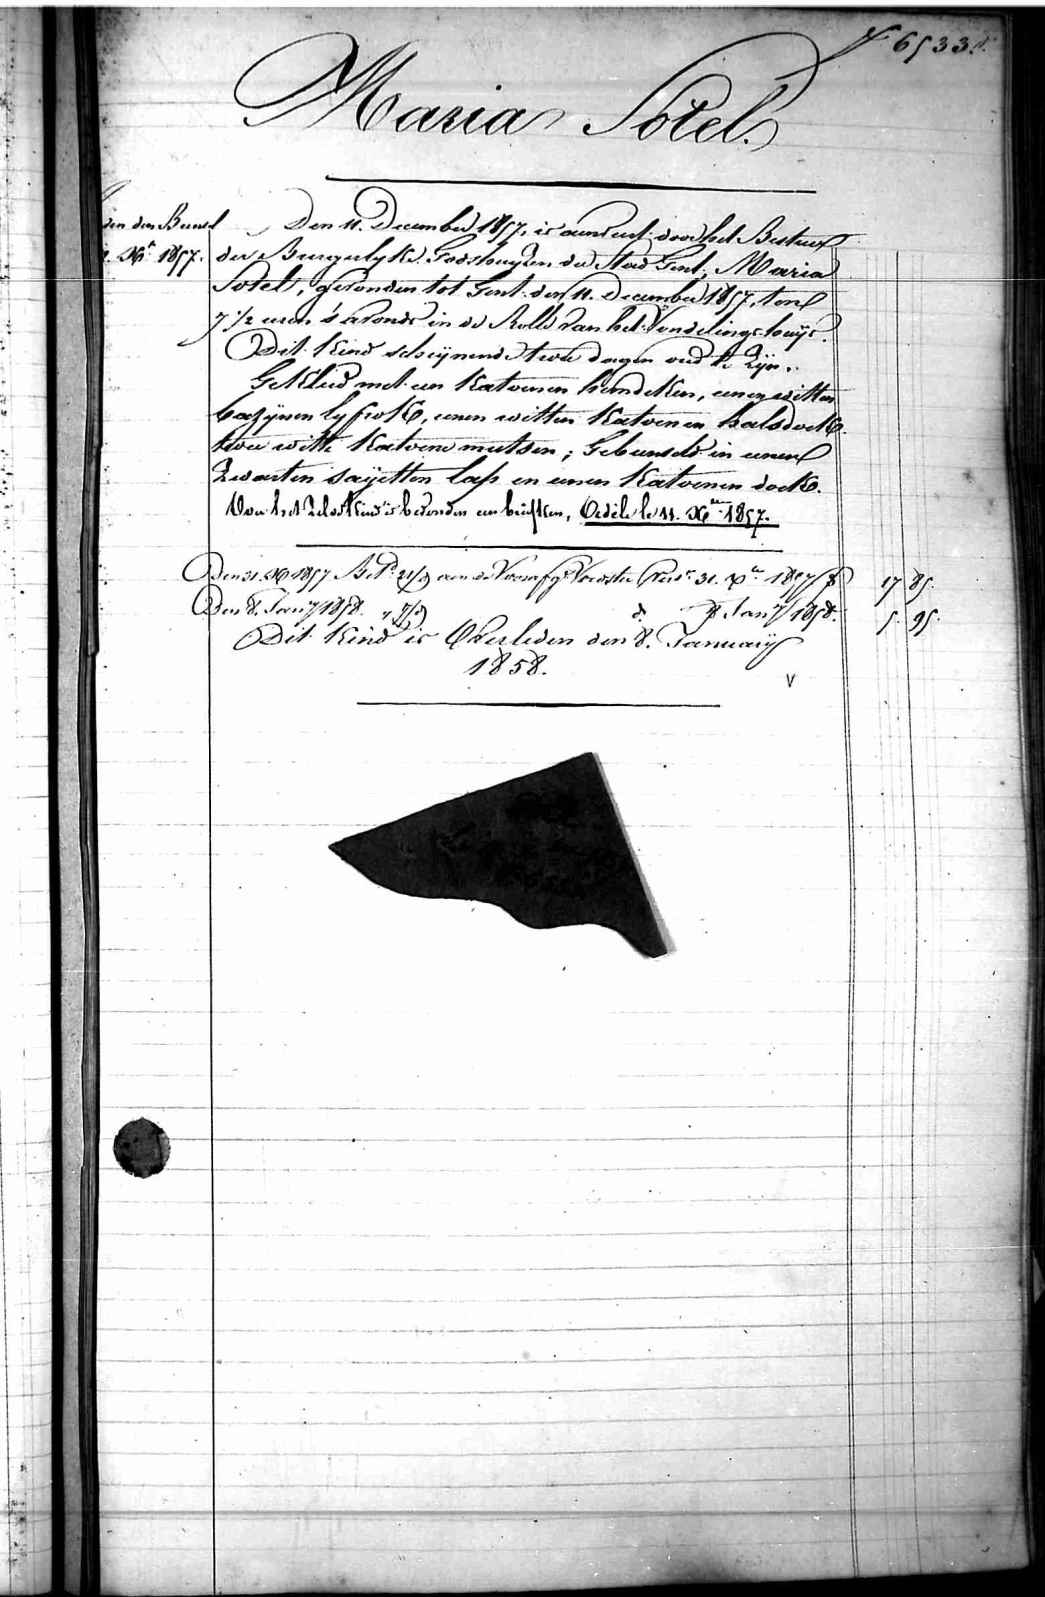 6533.
Maria Sotel.
den 
Xr 1857.
Den 11. December 1857, is aenveerd door het Bestuer
der Burgerlyke Godshuyzen der Stad Gent, Maria
Sotel, gevonden tot Gent den 11. December 1857, ten
7 1/2 uren 's avonds in de Rolle van het Vondelingshuys.
Dit Kind schijnende twee dagen oud te Zijn.
Gekleed met een Katoenen hemdeken, eenen witten
bazijnen lyfrok, eenen witten Katoenen halsdoek
twee witte Katoene mutsen; Gebunseld in eenen
Zwarten sayetten lap en eenen Katoenen doek.
Voor het Zelve Kind is bevonden een briefken, 1857.
Den 31. Xr 1857 aen de 31. Xr 1857 17 85.
Den 8. Jany 1858. d. Jany 1858. 5. 95.
Dit Kind is Overleden den 8. January
1858.
V